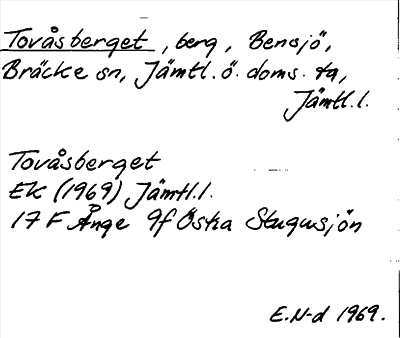 Tovåsberget, berg, Bensjö,
Bräcke sn, Jämtl. ö. doms. tg,
Jämtl. l.
Tovåsberget
EK (1969) Jämtl. l.
17 F Ånge 9f Östra Stugusjön
E.N-d 1969.